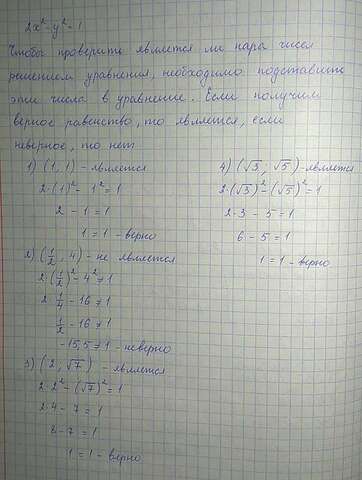 2x² - y² = 1
Чтобы проверить является ли пары чисел
решением уравнения, необходимо подставить
эти числа в уравнение. Если получим
верное равенство, то является, если
неверное, то нет.
1) (1, 1) - является
2·(1)² - 1² = 1
2 - 1 = 1
1 = 1 - верно
2) (1/2, 4) - не является
2(1/2)² - 4² ≠ 1
2 1/4 - 16 ≠ 1
1/2 - 16 ≠ 1
-15,5 ≠ 1 - неверно
3) (2, √7) - является
2·2² - (√7)² = 1
2·4 - 7 = 1
8 - 7 = 1
1 = 1 - верно
4) (√3; √5) - является
2·(√3)² - (√5)² = 1
2·3 - 5 = 1
6 - 5 = 1
1 = 1 - верно